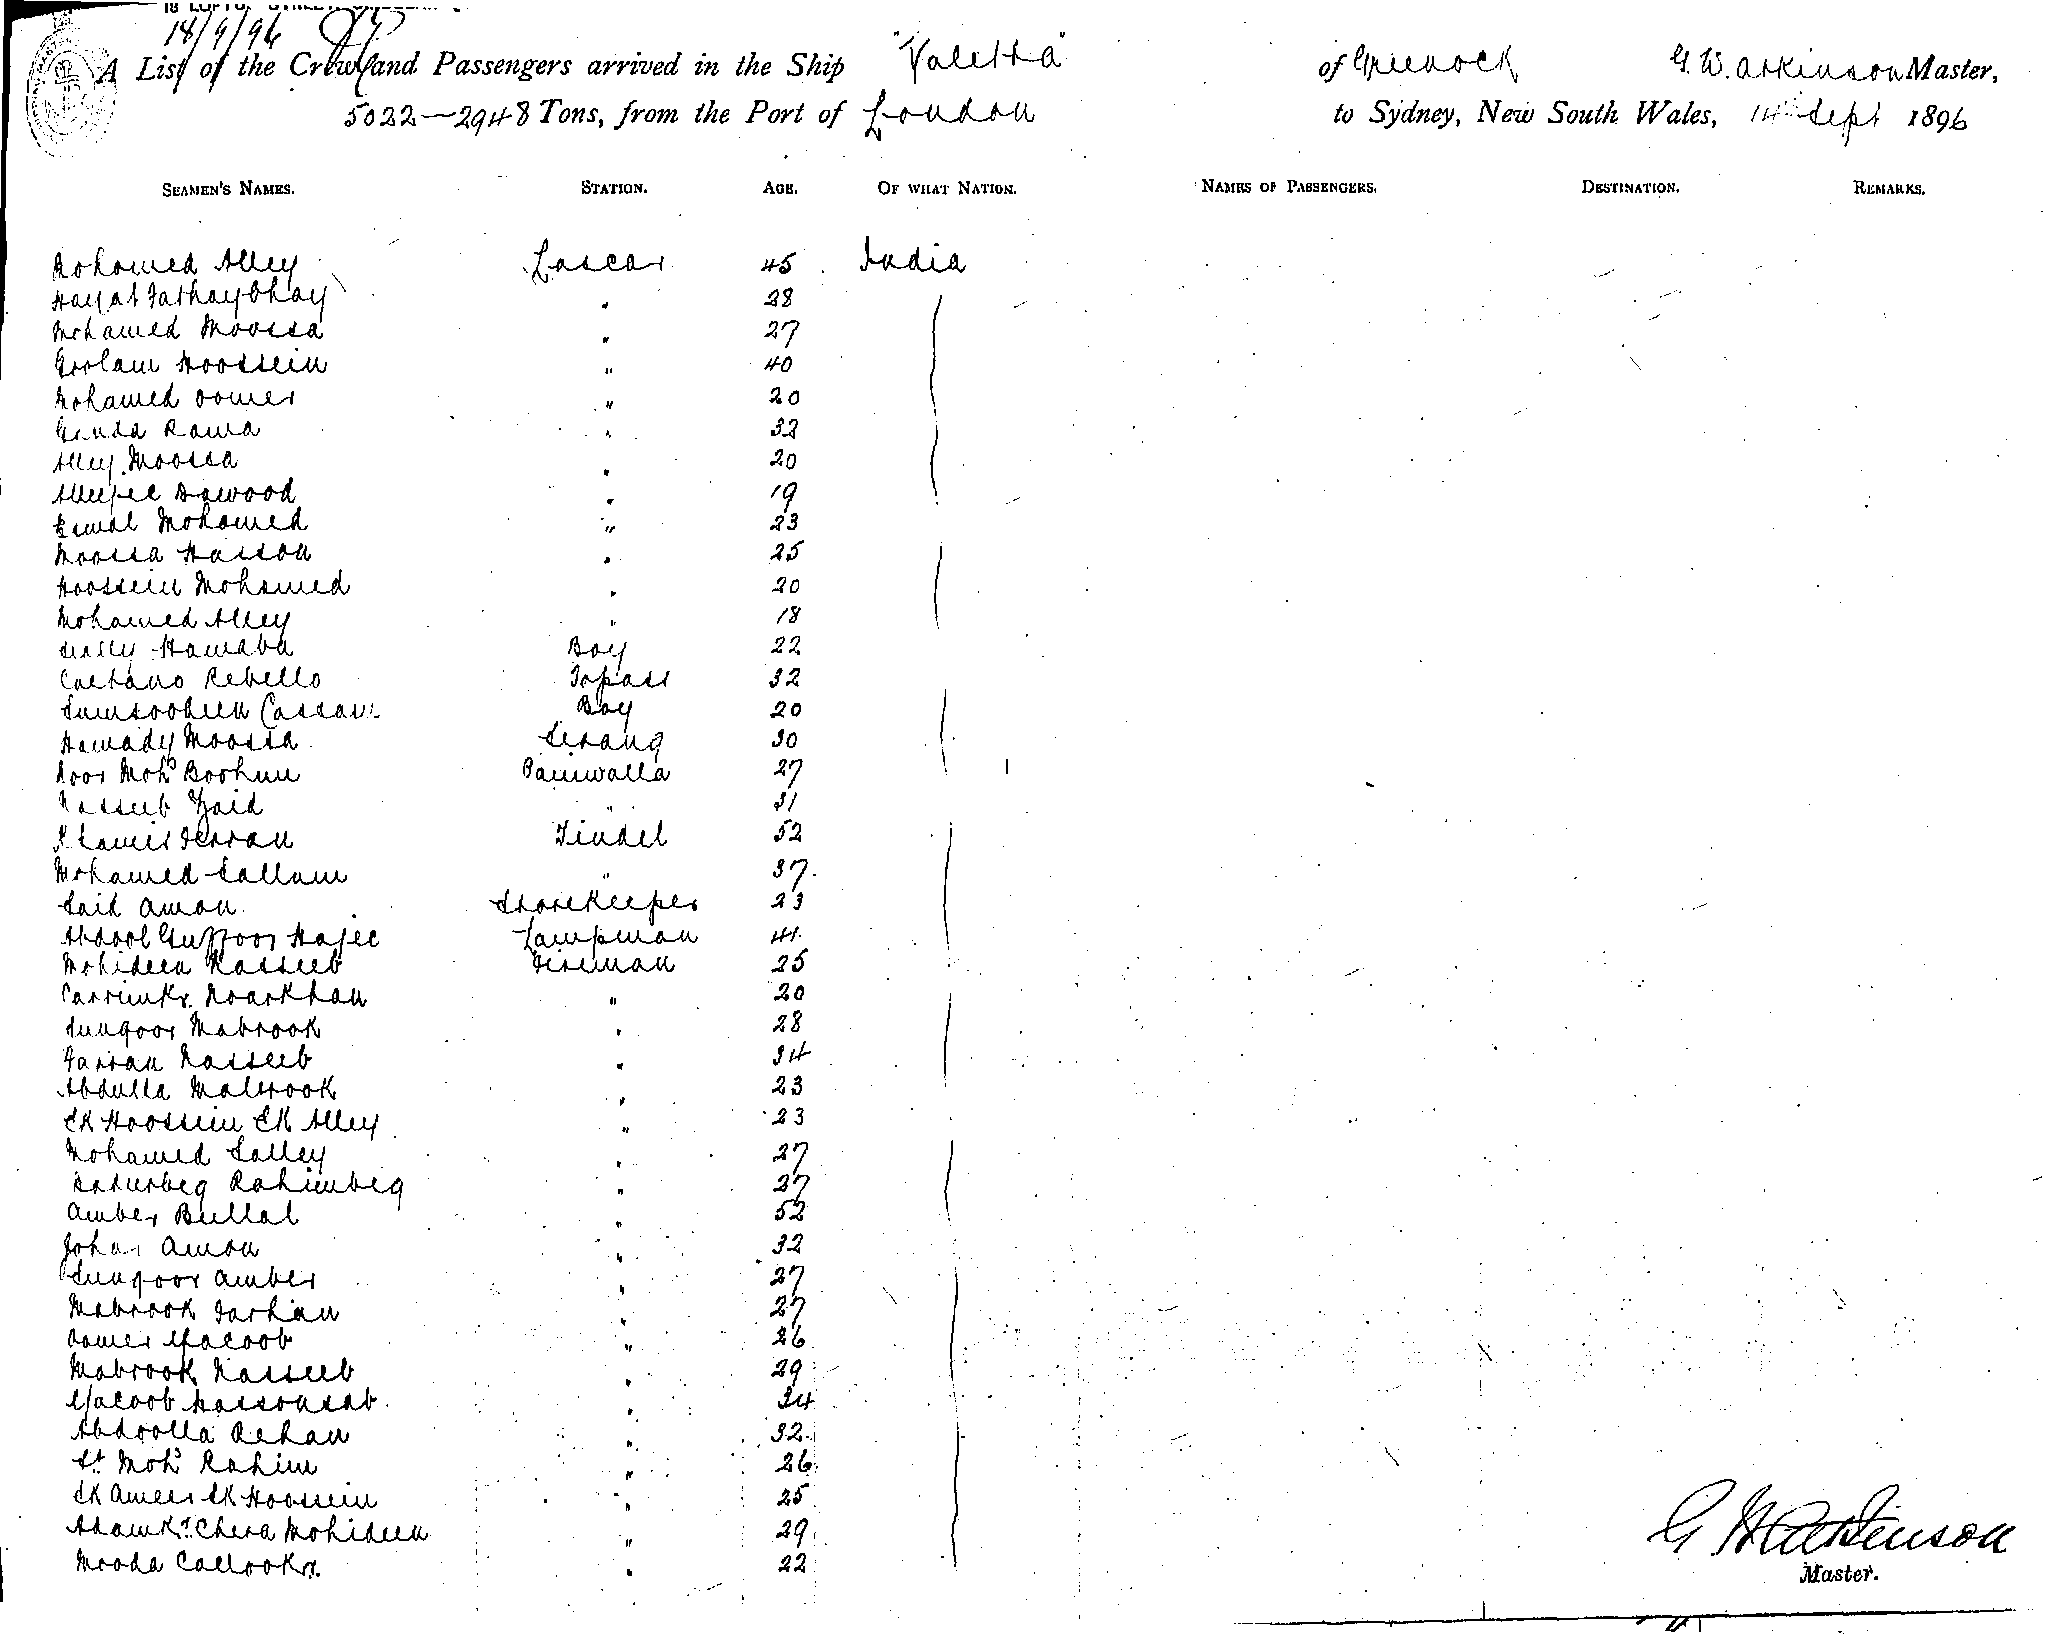 18/9/96
A List of the Crew and Passengers arrived in the Ship "Valetta" of Greenock G. W. Atkinson Master,
5022—2948 Tons, from the Port of London to Sydney, New South Wales, 14th Sept 1896
SEAMEN'S NAMES. STATION. AGE. OF WHAT NATION. NAMES OF PASSENGERS. DESTINATION. REMARKS.
Mohamed Alley Lascar 45 India
Hayat Fathaybhay " 28
Mohamed Moossa " 27
Goolam Hoossein " 40
Mohamed Oomer " 20
Rama " 32
Alley Moossa " 20
Dawood " 19
Esmal Mohamed " 23
Moossa Hasson " 25
Hoossein Mohamed " 20
Mohamed Alley " 18
Hamaba Boy 22
Caetano Rebello Topass 32
Sumsoodeen Cassam Boy 20
Hamady Moossa Serang 30
Noor Mohd Boohun Paniwalla 27
Nasseeb Zaid " 31
Khamis Ferran Tindel 52
Mohamed Sallum " 37
Said Aman Storekeeper 23
Abdool Guffoor Hajee Lampman 41
Mohideen Nasseeb Fireman 25
Carrimkn. Noorkhan " 20
Sungoor Mabrook " 28
Farran Nasseeb " 34
Abdulla Mabrook " 23
SK Hoossein SK Alley " 23
Mohamed Salley " 27
Rahimbeg " 27
Amber Bullal " 52
Johar Aman " 32
Sungoor Amber " 27
Mabrook Farhan " 27
Oomer Yacoob " 26
Mabrook Nasseeb " 29
Yacoob Hassonsab " 34
Abdoolla Rehan " 32
St Mohd Rahim " 26
SK Ameer SK Hoossein " 25
Adamkn. Chera Mohideen " 29
Mooda Callookn. " 22
G W Atkinson
Master.